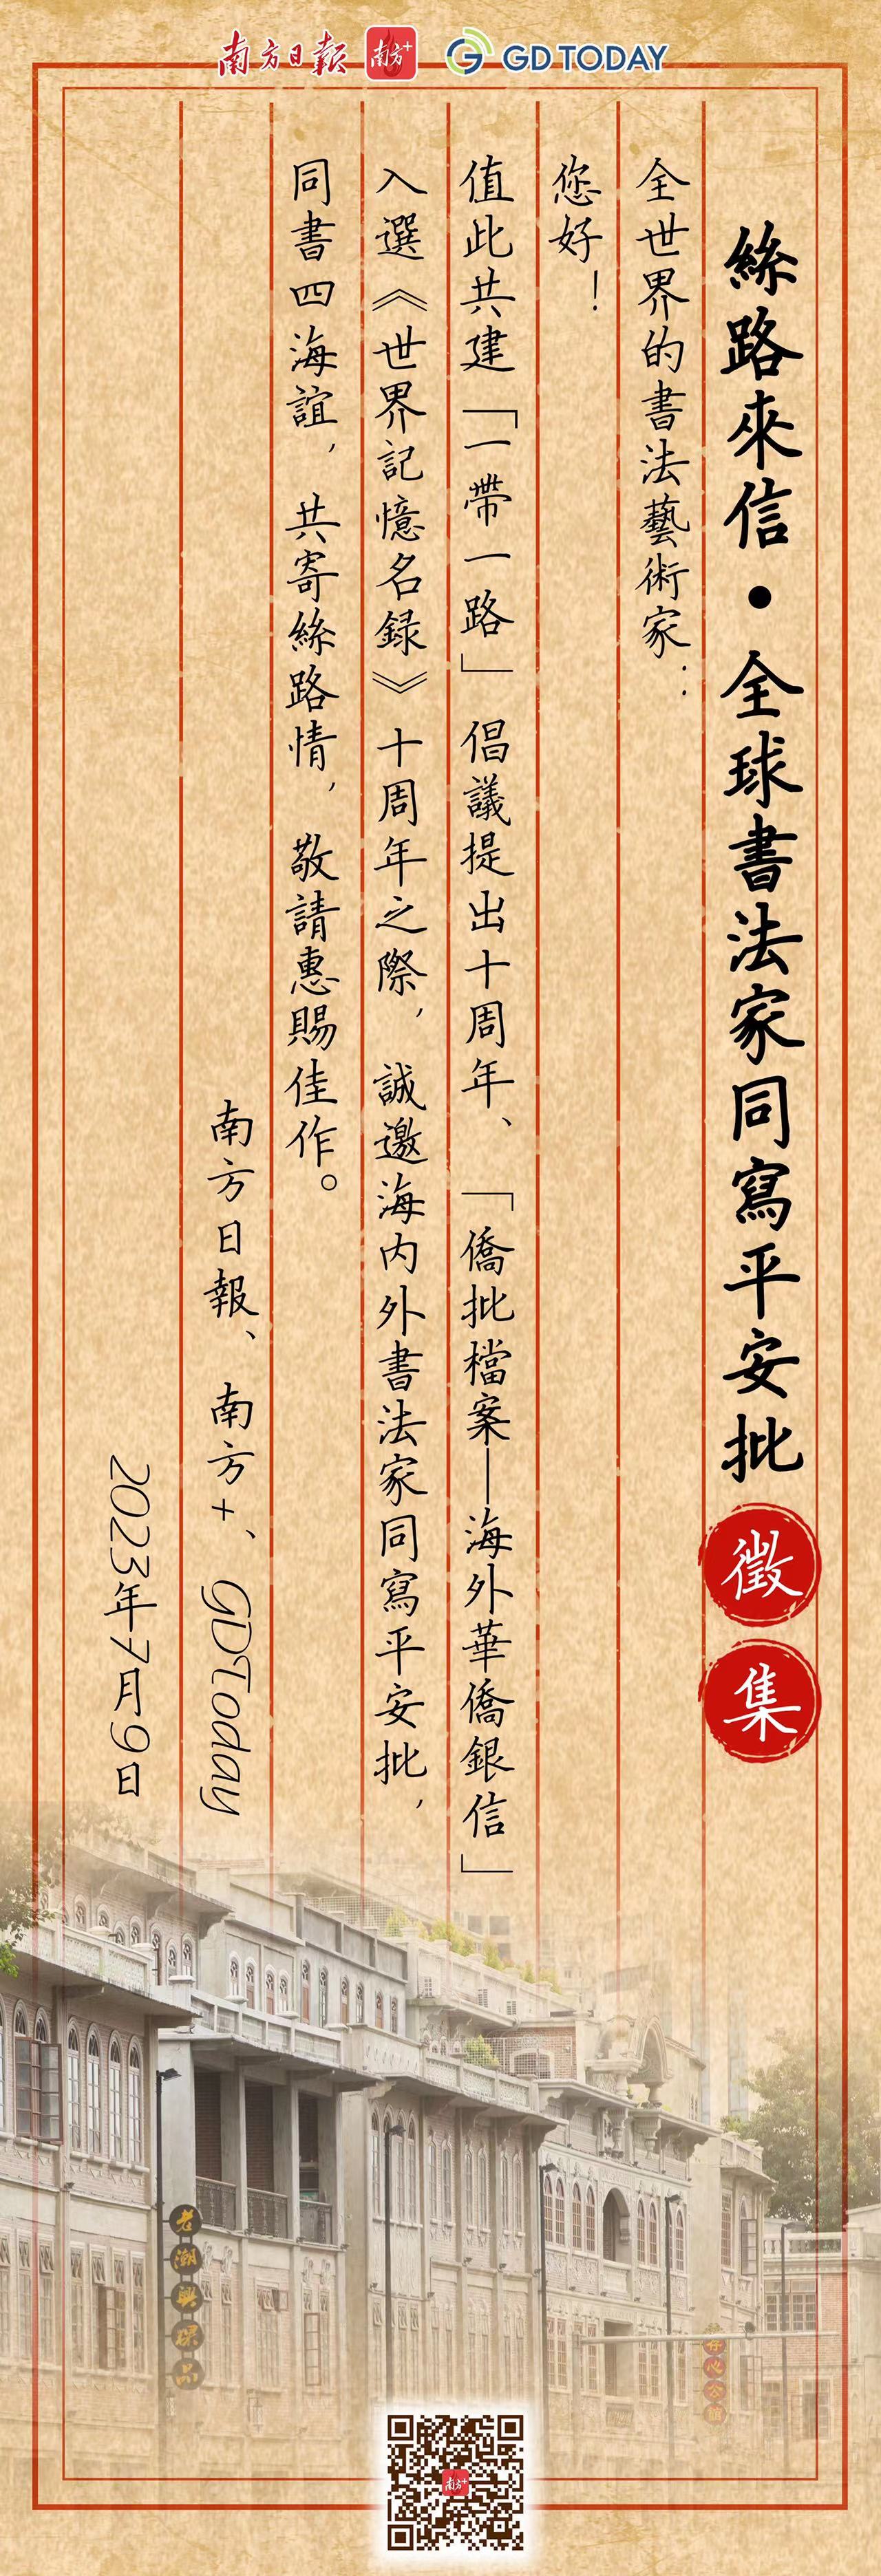 南方日報 南方+ GDTODAY
絲路來信·全球書法家同寫平安批
徵集
全世界的書法藝術家：
您好！
值此共建「一帶一路」倡議提出十周年、「僑批檔案—海外華僑銀信」
入選《世界記憶名録》十周年之際，誠邀海内外書法家同寫平安批，
同書四海誼，共寄絲路情，敬請惠賜佳作。
南方日報、南方+、GDToday
2023年7月9日
老潮興粿品
存心公館
南方+